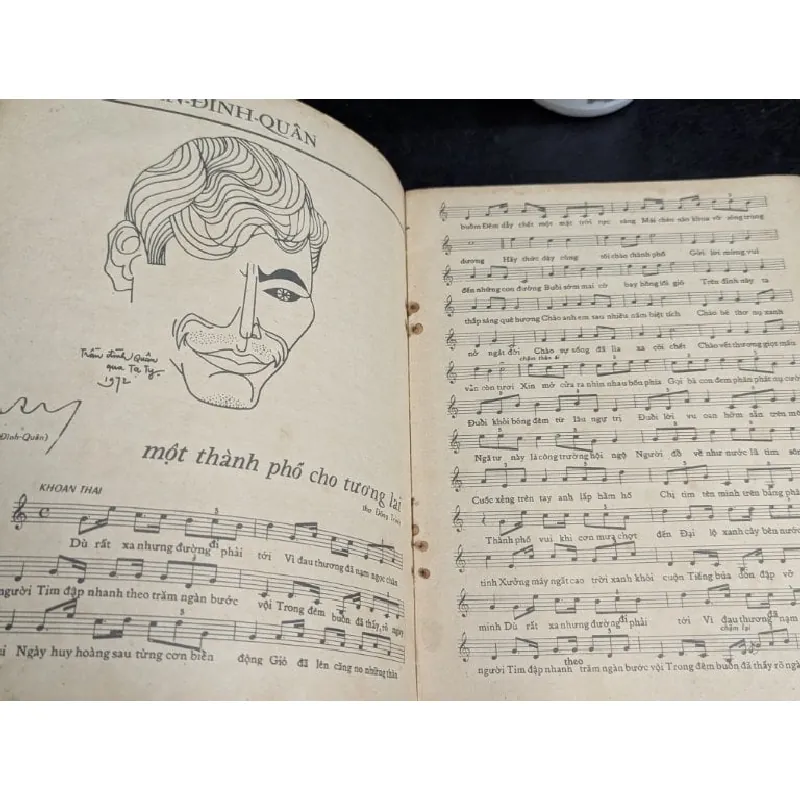 N-ĐÌNH-QUÂN
Trần đình Quân
qua Tạ Tỵ.
1972
Đình-Quân)
một thành phố cho tương lai
thơ Đông Trình
KHOAN THAI
Dù rất xa nhưng đường đi phải tới Vì đau thương đã nạm ngọc chân
người Tim đập nhanh theo trăm ngàn bước vội Trong đêm buồn đã thấy rõ ngày
Ngày huy hoàng sau từng cơn biến động Gió đã lên căng no những thân
buồm Đêm dẫy chết một mặt trời rực sáng Mái chèo nào khua vỡ sóng trùng
dương Hãy thức dậy cùng tôi chào thành phố Gửi lời mừng vui
đến những con đường Buổi sớm mai cờ bay hồng lối gió Trên đỉnh này ta
thắp sáng quê hương Chào anh em sau nhiêu năm biệt tích Chào bé thơ nụ xanh
nở ngát đời Chào sự sống đã lìa xa cõi chết Chào vết thương giọt máu
chậm thân ái
vẫn còn tươi Xin mở cửa ra nhìn nhau bốn phía Gọi bà con đem phân phát nụ cười
Đuổi khỏi bóng đêm từ lâu ngự trị Đuổi lời vu oan hờm sẵn trên mô
Ngã tư này là công trường hội ngộ Người đổ về như nước lũ tìm sôn
Cuốc xẻng trên tay anh lấp hầm hố Chị tìm tên mình trên bảng phâ
Thành phố vui khi cơn mưa chợt đến Đại lộ xanh cây bên nước
tình Xưởng máy ngất cao trời xanh khói cuộn Tiếng búa dồn đập vỡ
minh Dù rất xa nhưng đường đi phải tới Vì đau thương đã nạm
chậm lại
người Tim đập nhanh theo trăm ngàn bước vội Trong đêm buồn đã thấy rõ ngà